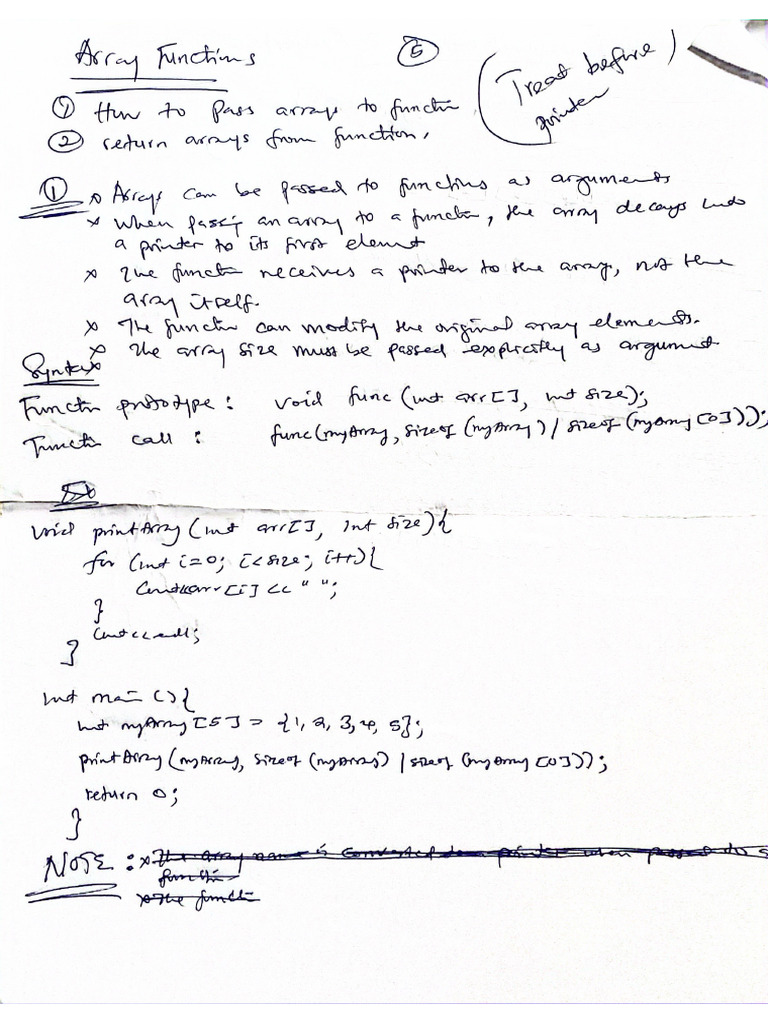 Array Functions
⑤
(Treat before
pointer)
① How to pass arrays to function
② return arrays from function.
① x Arrays can be passed to functions as arguments
x When passing an array to a function, the array decays into
a pointer to its first element
x The function receives a pointer to the array, not the
array itself.
x The function can modify the original array elements.
x The array size must be passed explicitly as argument
Syntax
Function prototype : void func (int arr[], int size);
Function call : func(myArray, sizeof (myArray) / sizeof (myArray [0]));
Ex
void printArray (int arr[], int size){
for (int i=0; i<size; i++){
cout<<arr[i] << " ";
}
cout<<endl;
}
int main () {
int myArray [5] = {1, 2, 3, 4, 5};
printArray (myArray, sizeof (myArray) / sizeof (myArray [0]));
return 0;
}
NOTE : x The array name is converted to a pointer when passed to a
function
x The function